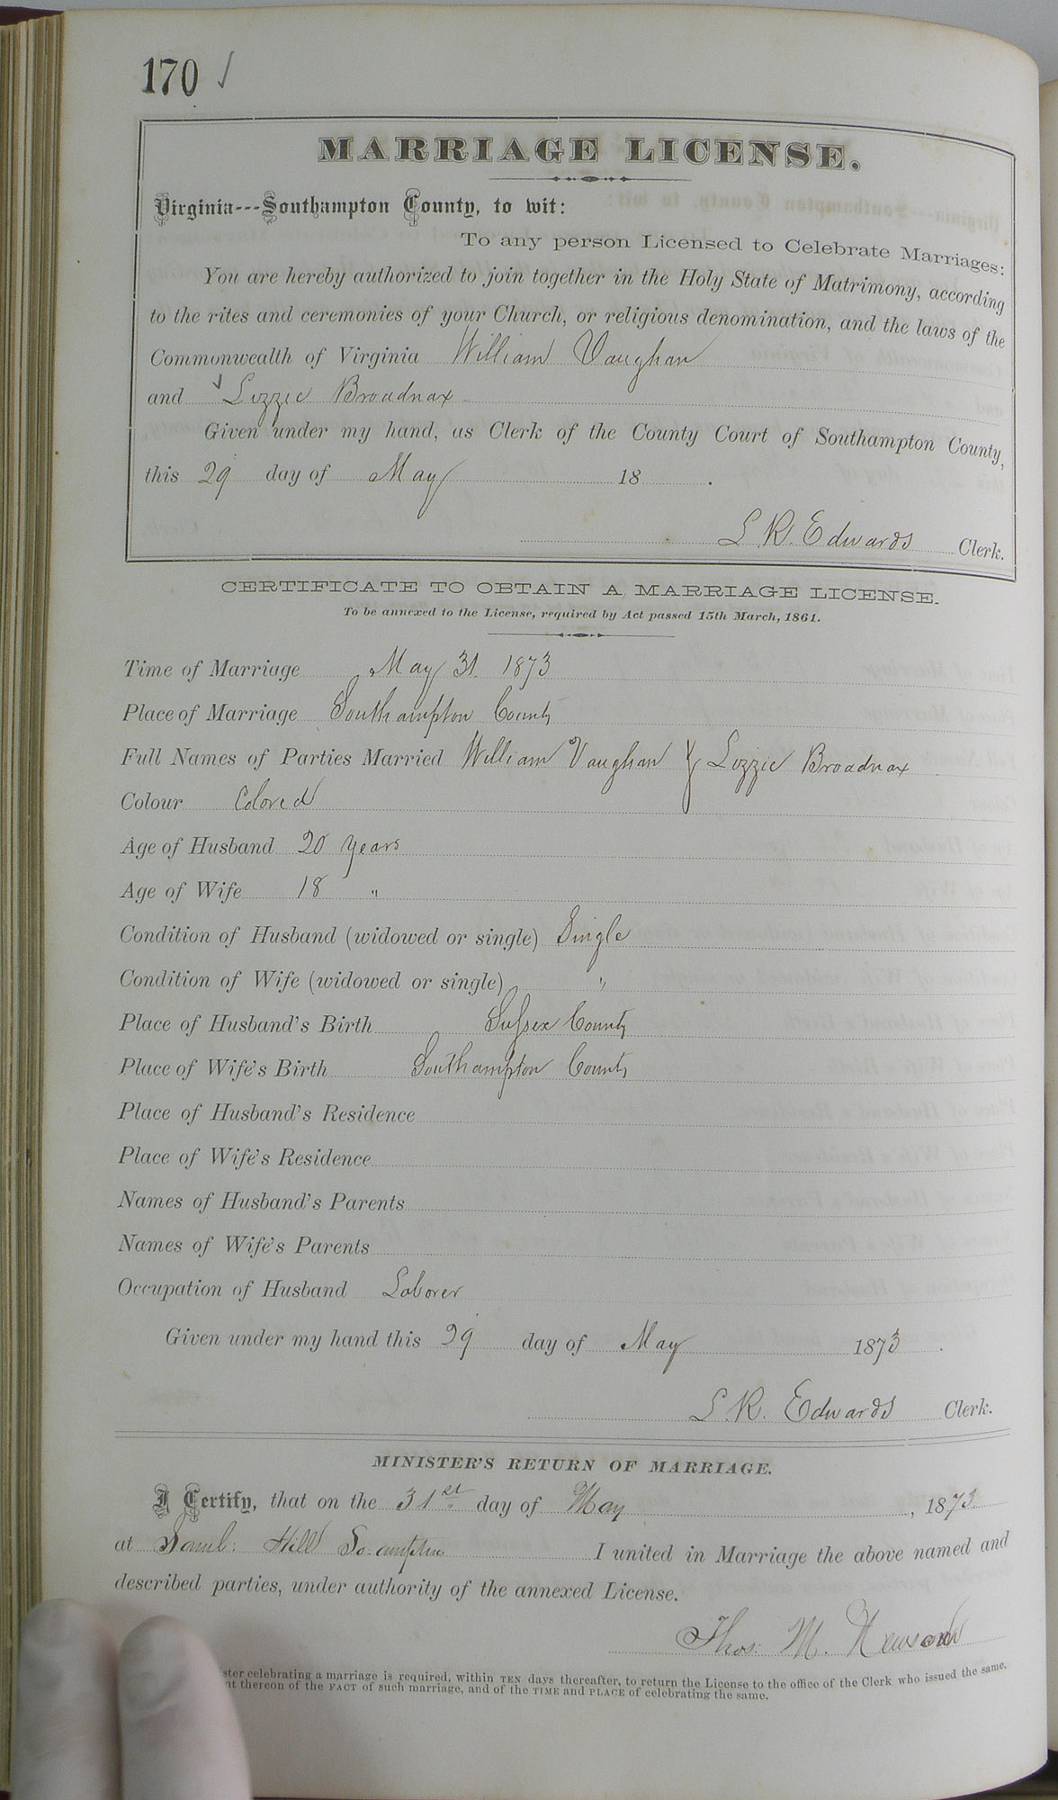 170 ✓
MARRIAGE LICENSE.
Virginia---Southampton County, to wit:
To any person Licensed to Celebrate Marriages:
You are hereby authorized to join together in the Holy State of Matrimony, according
to the rites and ceremonies of your Church, or religious denomination, and the laws of the
Commonwealth of Virginia William Vaughan
and ✓ Lizzie Broadnax
Given under my hand, as Clerk of the County Court of Southampton County,
this 29 day of May 18 .
L. R. Edwards Clerk.
CERTIFICATE TO OBTAIN A MARRIAGE LICENSE.
To be annexed to the License, required by Act passed 15th March, 1861.
Time of Marriage May 31. 1873
Place of Marriage Southampton County
Full Names of Parties Married William Vaughan & Lizzie Broadnax
Colour Colored
Age of Husband 20 years
Age of Wife 18 "
Condition of Husband (widowed or single) Single
Condition of Wife (widowed or single) "
Place of Husband's Birth Sussex County
Place of Wife's Birth Southampton County
Place of Husband's Residence
Place of Wife's Residence
Names of Husband's Parents
Names of Wife's Parents
Occupation of Husband Laborer
Given under my hand this 29 day of May 1873 .
L. R. Edwards Clerk.
MINISTER'S RETURN OF MARRIAGE.
I Certify, that on the 31st day of May, 1873
at Saml: Hill So.ampton I united in Marriage the above named and
described parties, under authority of the annexed License.
Thos: M. Newsom
celebrating a marriage is required, within TEN days thereafter, to return the License to the office of the Clerk who issued the same.
thereon of the FACT of such marriage, and of the TIME and PLACE of celebrating the same.